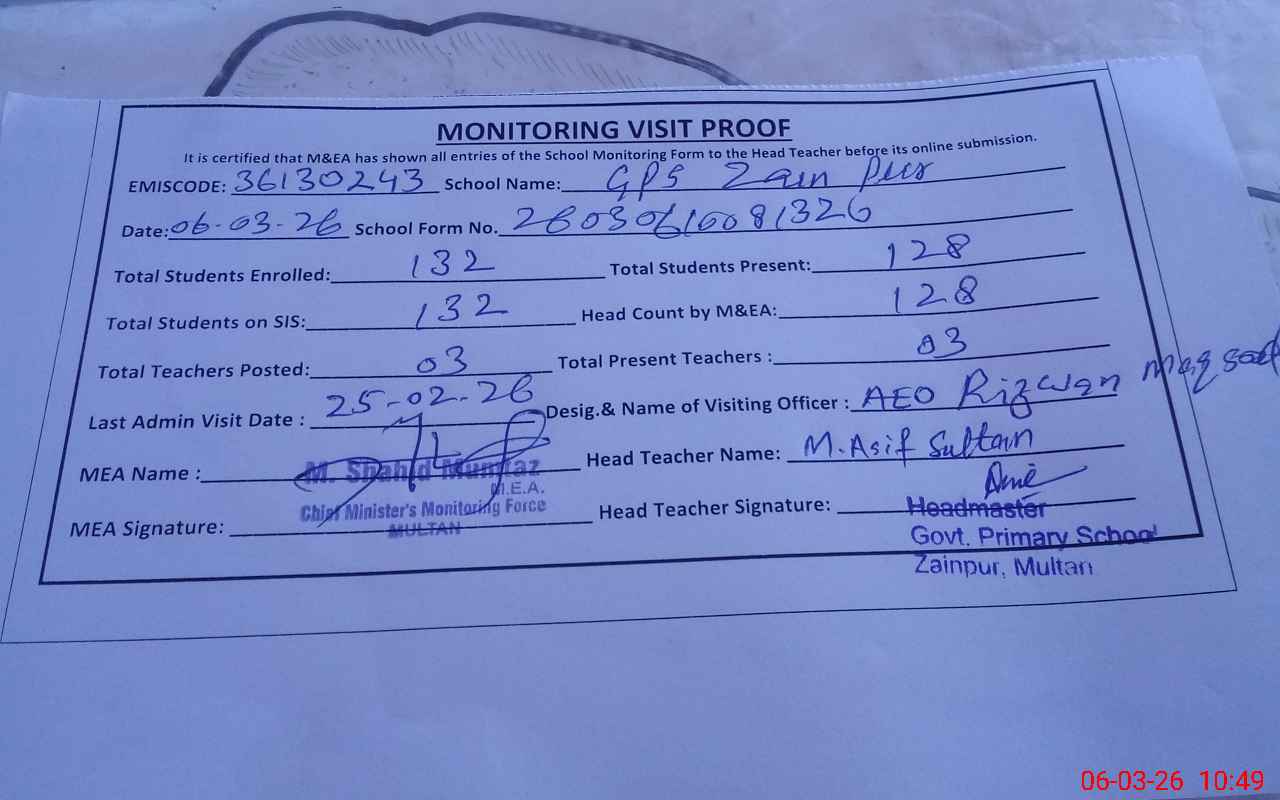 MONITORING VISIT PROOF
It is certified that M&EA has shown all entries of the School Monitoring Form to the Head Teacher before its online submission.
EMISCODE: 36130243 School Name: GPS Zain Pur
Date: 06-03-26 School Form No. 26030610081326
Total Students Enrolled: 132 Total Students Present: 128
Total Students on SIS: 132 Head Count by M&EA: 128
Total Teachers Posted: 03 Total Present Teachers : 03
Last Admin Visit Date : 25-02-26 Desig.& Name of Visiting Officer : AEO Rizwan Maqsood
MEA Name : M. Shahid Mumtaz Head Teacher Name: M. Asif Sultan
M.E.A.
Chief Minister's Monitoring Force
MULTAN
MEA Signature: Head Teacher Signature:
Headmaster
Govt. Primary School
Zainpur, Multan
06-03-26 10:49